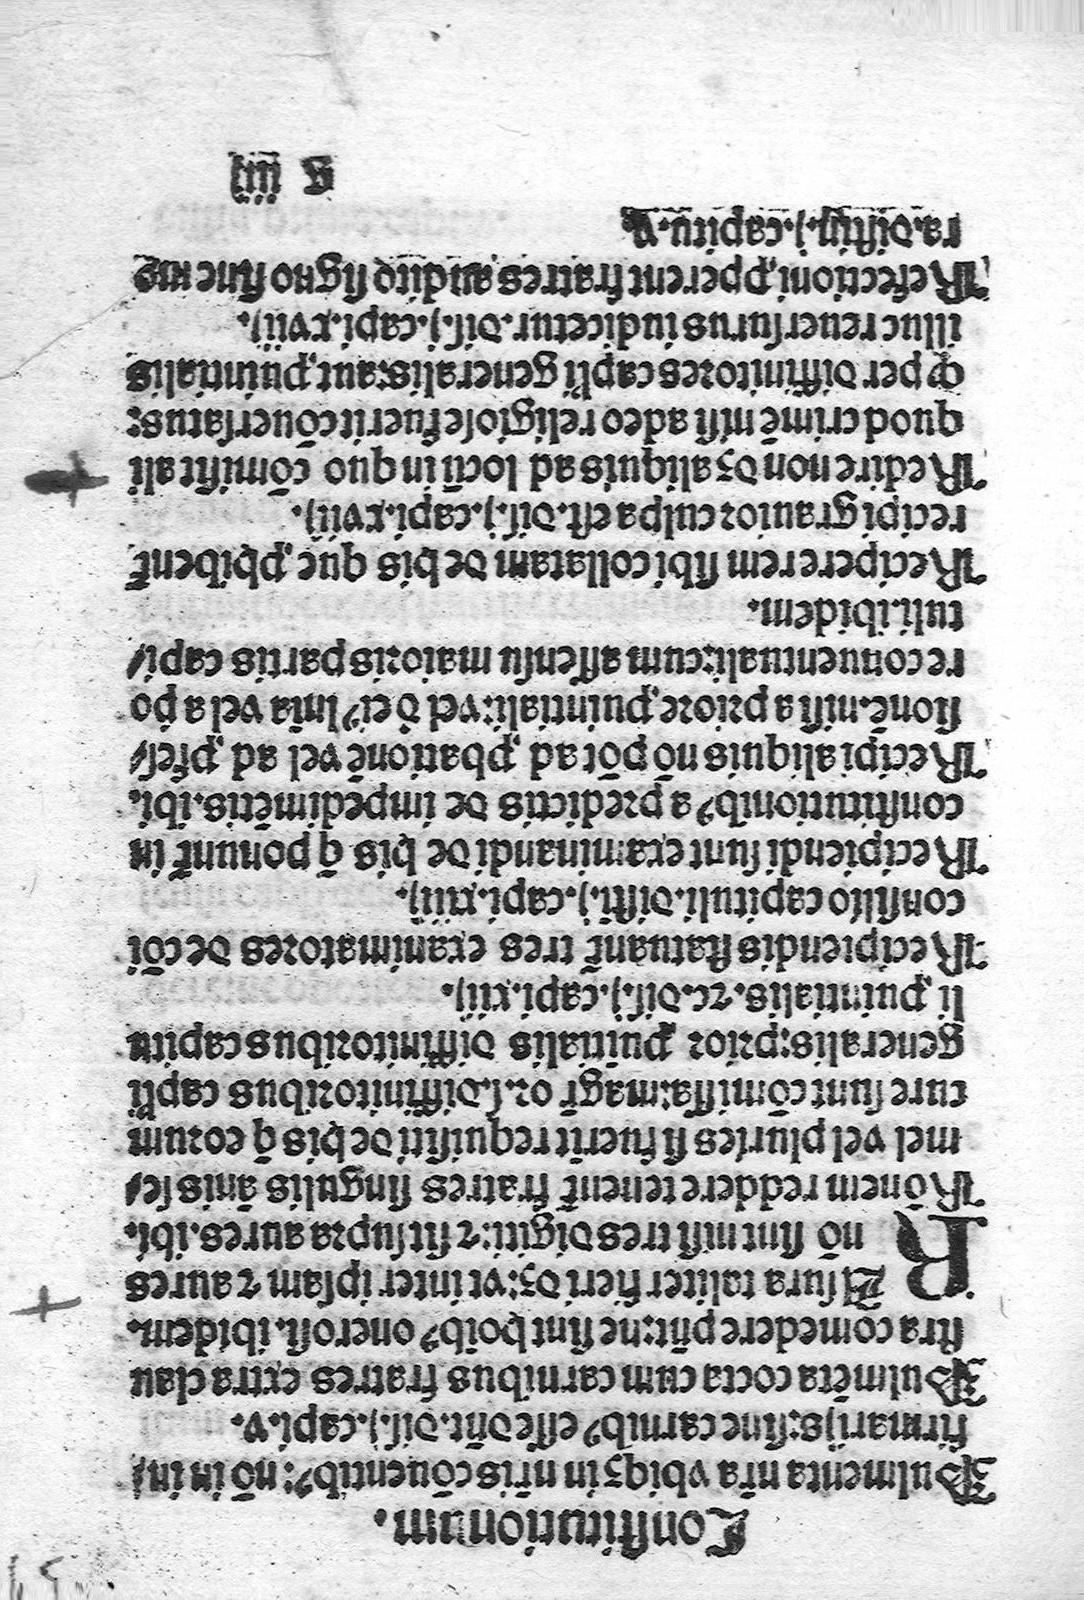 Constitutionum.
Pulmenta nr̃a vbiqꝫ in nr̃is cõuentibꝰ: nõ in in/
firmarijs: sine carnibꝰ esse dñt. dis. j. capi. v.
Pulmẽta cocta cum carnibus fratres extra clau
stra comedere pñt: ne sint hoĩbꝰ onerosi. ibidem.
RAsura taliter fieri dꝫ: vt inter ipsam ⁊ aures
nõ sint nisi tres digiti: ⁊ sit supra aures. ibi.
Rõnem reddere tenent̃ fratres singulis ãnis se/
mel vel pluries si fuerĩt requisiti de his q̃ eorum
cure sunt cõmissa: magr̃ or. s. diffinitoribus capl̃i
generalis: prior ꝓuĩtialis diffinitoribus capitu
li ꝓuintialis. ⁊c. dis. j. capi. xiij.
Recipiendis statuant̃ tres examinatores de cõi
consilio capituli. disti. j. capi. xiiij.
Recipiendi sunt examinandi de his q̃ ponunt̃ in
constitutionibꝰ a predictis de impedimẽtis. ibi.
Recipi aliquis nõ põt ad ꝓbationẽ vel ad ꝓfes/
sionẽ. nisi a priore ꝓuintiali: vel d̃ eiꝰ lñia vel a po
re conuentuali: cum assensu maioris partis capi/
tuli. ibidem.
Recipere rem sibi collatam de his que ꝓhibent̃
recipi grauior culpa est. dis. j. capi. xviij.
Redire non dꝫ aliquis ad locũ in quo cõmisit ali
quod crimẽ nisi adeo religiose fuerit cõuersatus:
ꝙ per diffinitores capl̃i generalis: aut ꝓuintialis
illuc reuersurus iudicetur. dis. j. capi. xviij.
Refectioni ꝓperent fratres audito signo sine mo
ra. disti. j. capitu. v.
s iiij